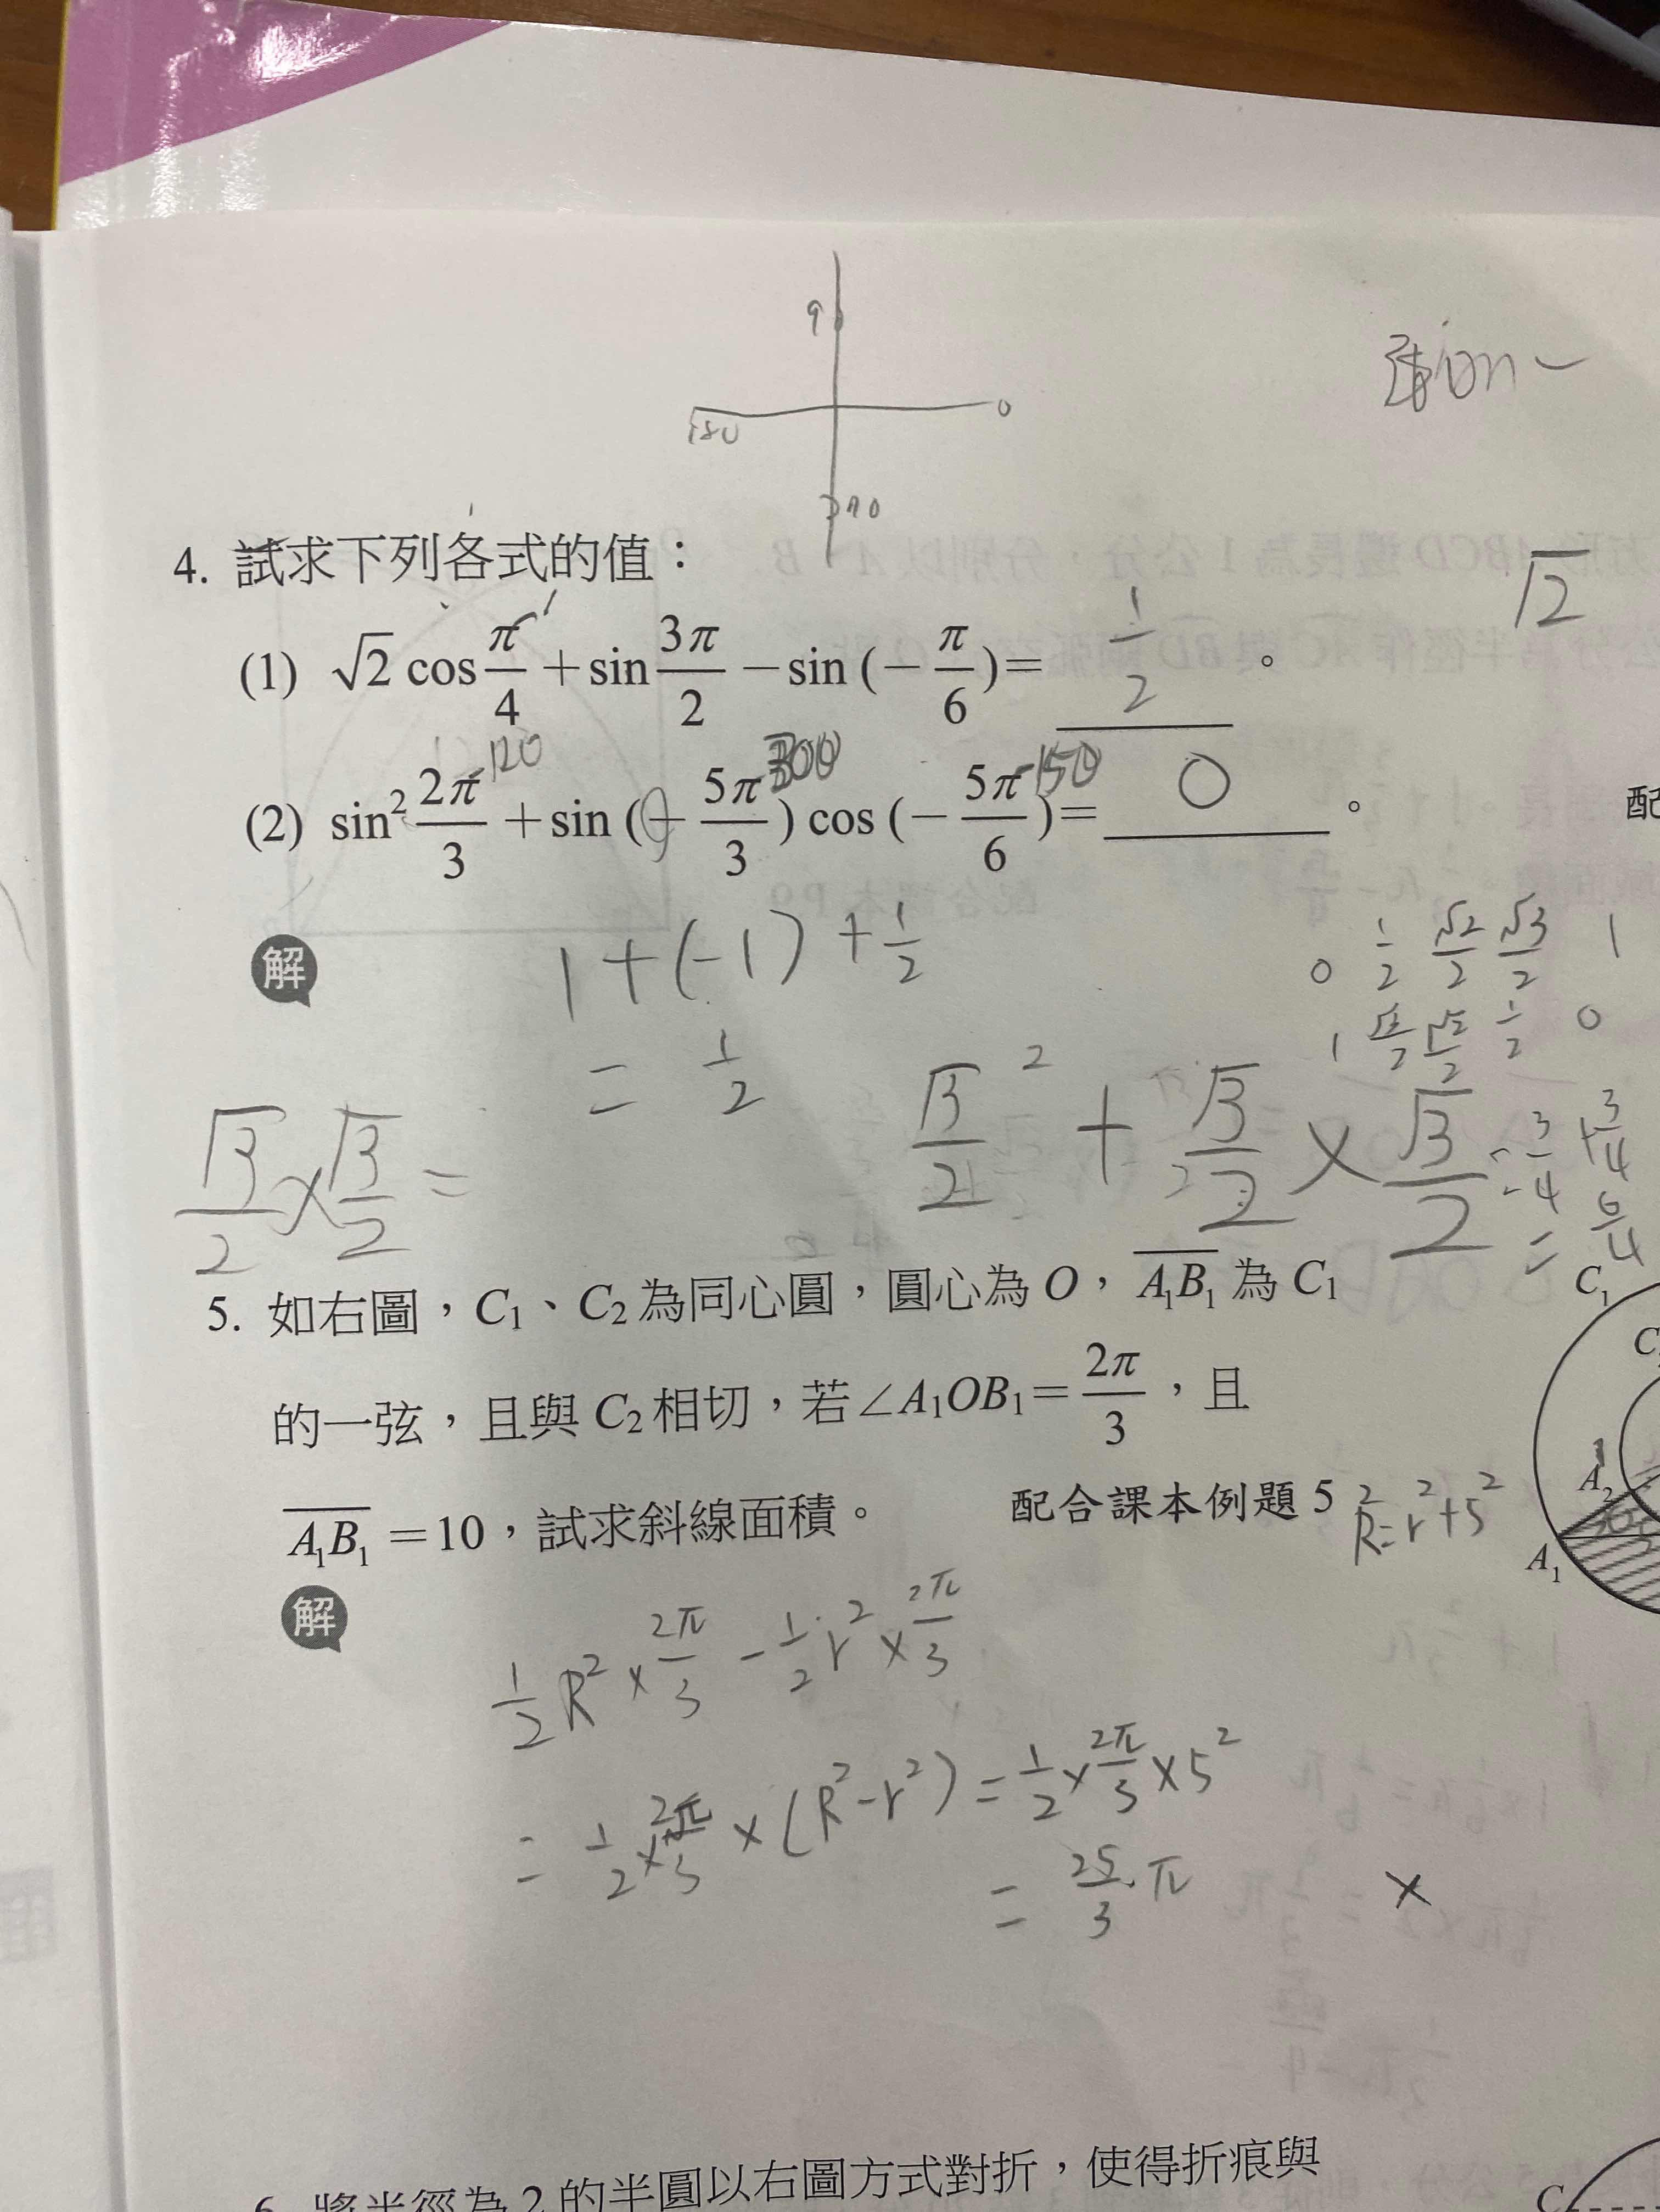 90
180
0
270
√2
4. 試求下列各式的值：
(1) √2 cos π/4 + sin 3π/2 − sin (− π/6) = 1/2 。
120 300 -150
(2) sin² 2π/3 + sin (− 5π/3) cos (− 5π/6) = 0 。
配
解
1 + (-1) + 1/2
= 1/2
0 1/2 √2/2 √3/2 1
1 √3/2 √2/2 1/2 0
√3/2 × √3/2 =
√3/2 ² + √3/2 × √3/2 = 3/4 + 3/4
= 6/4
5. 如右圖，C₁、C₂為同心圓，圓心為 O，A₁B₁ 為 C₁
的一弦，且與 C₂ 相切，若∠A₁OB₁ = 2π/3，且
A₁B₁ = 10，試求斜線面積。 配合課本例題 5
R² = r² + 5²
C₁
A₂
A₁
解
1/2 R² × 2π/3 − 1/2 r² × 2π/3
= 1/2 × 2π/3 × (R² − r²) = 1/2 × 2π/3 × 5²
= 25/3 · π
×
6. 將半徑為 2 的半圓以右圖方式對折，使得折痕與
C